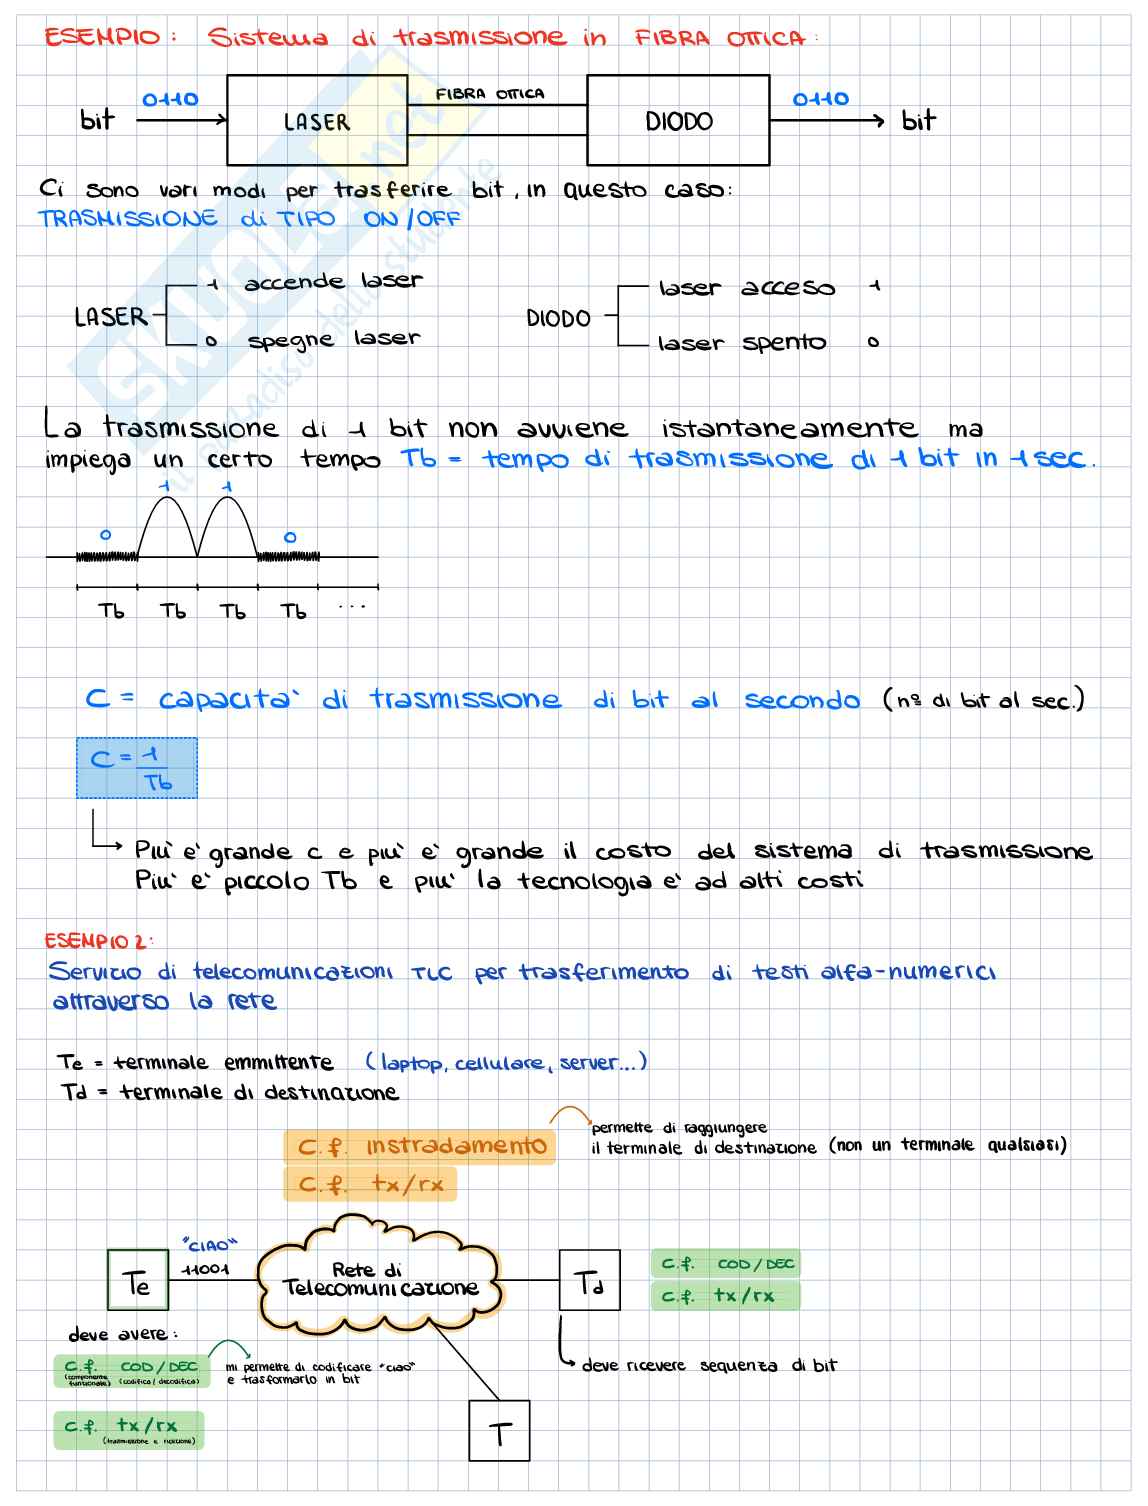 ESEMPIO: Sistema di trasmissione in FIBRA OTTICA:
bit 0110 LASER FIBRA OTTICA DIODO 0110 bit
Ci sono vari modi per trasferire bit, in questo caso:
TRASMISSIONE di TIPO ON/OFF
LASER
1 accende laser
0 spegne laser
DIODO
laser acceso 1
laser spento 0
La trasmissione di 1 bit non avviene istantaneamente ma
impiega un certo tempo Tb = tempo di trasmissione di 1 bit in 1 sec.
0 1 1 0
Tb Tb Tb Tb ...
C = capacita' di trasmissione di bit al secondo (nº di bit al sec.)
C = 1
Tb
Piu' e' grande c e piu' e' grande il costo del sistema di trasmissione
Piu' e' piccolo Tb e piu' la tecnologia e' ad alti costi
ESEMPIO 2:
Servizio di telecomunicazioni TLC per trasferimento di testi alfa-numerici
attraverso la rete
Te = terminale emmittente (laptop, cellulare, server...)
Td = terminale di destinazione
c.f. instradamento
permette di raggiungere
il terminale di destinazione (non un terminale qualsiasi)
c.f. tx/rx
Te
"CIAO"
11001
Rete di
Telecomunicazione
Td
c.f. COD/DEC
c.f. tx/rx
deve avere:
c.f. COD/DEC
(componente funzionale) (codifica/decodifica)
mi permette di codificare "ciao"
e trasformarlo in bit
c.f. tx/rx
(trasmissione e ricezione)
deve ricevere sequenza di bit
T
SKUOLA.net
il paradiso dello studente